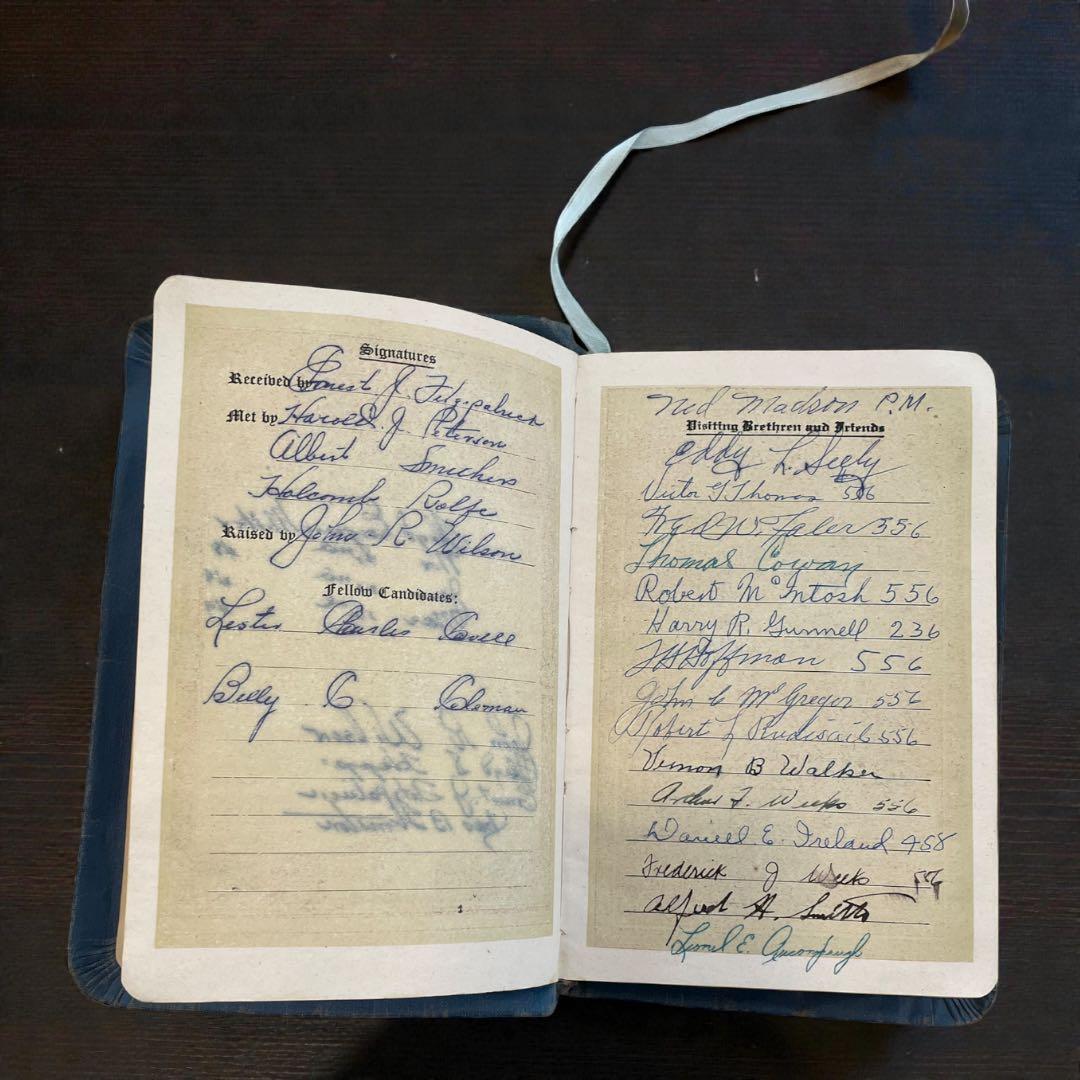 Signatures
Received by Ernest J. Fitzpatrick
Met by Harold J. Peterson
Albert Smithers
Holcomb Rolfe
Raised by John R. Wilson
Fellow Candidates:
Lester Charles
Billy C Coleman
1
Ned Madson P.M.
Visiting Brethren and Friends
Eddy L. Seely
Victor G. Thomas 556
Fred W. 556
Thomas Cowan
Robert McIntosh 556
Harry R. Gunnell 236
Hoffman 556
John C McGregor 556
Robert L Rudisail 556
Vernon B Walker
Arthur F. Weeks 556
Daniell E. Ireland 458
Frederick J Weeks 556
Alfred H. Smith
Lionel E.